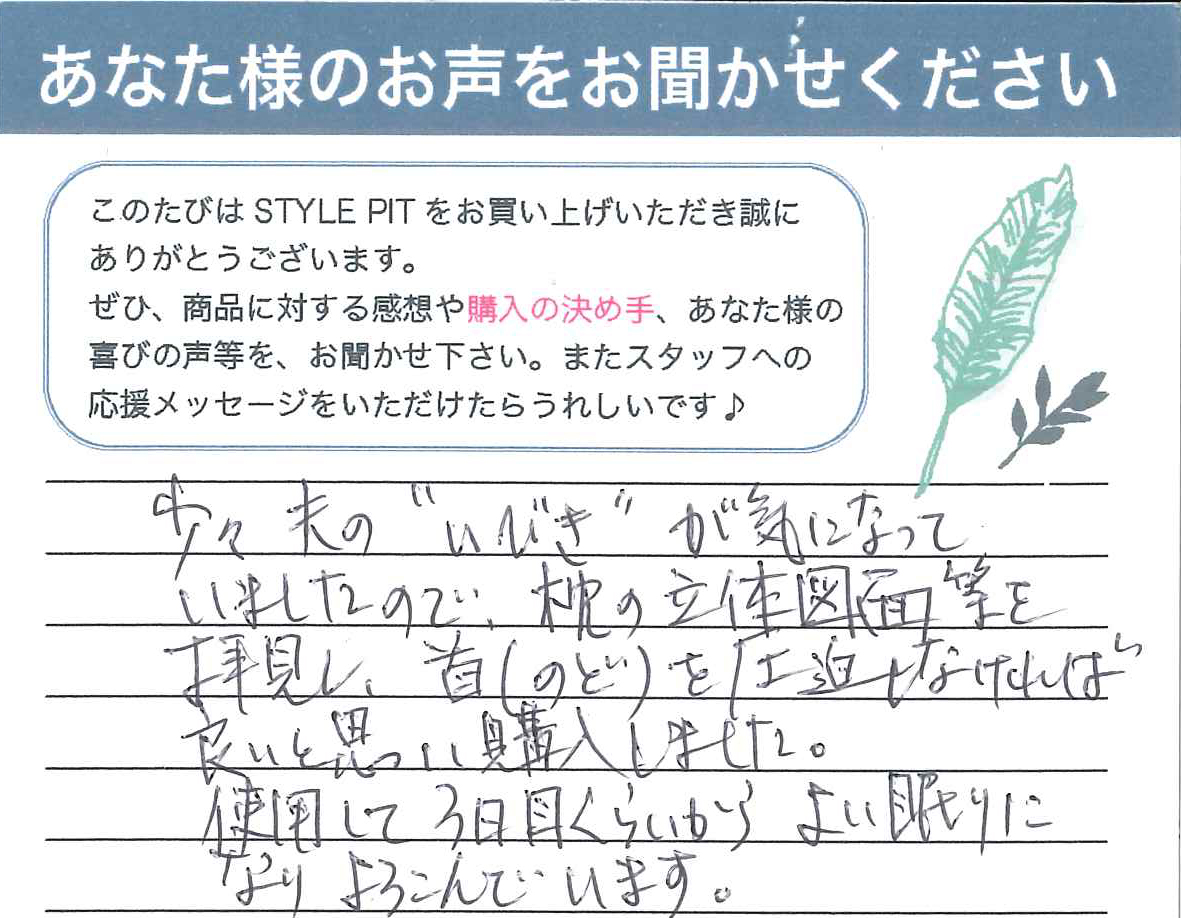 あなた様のお声をお聞かせください
このたびは STYLE PIT をお買い上げいただき誠に
ありがとうございます。
ぜひ、商品に対する感想や購入の決め手、あなた様の
喜びの声等を、お聞かせ下さい。またスタッフへの
応援メッセージをいただけたらうれしいです♪
少々 夫の"いびき"が気になって
いましたので、枕の立体図面等を
拝見し、首(のど)を圧迫しなければ
良いと思い購入しました。
使用して3日目くらいから よい眠りに
なり よろこんでいます。